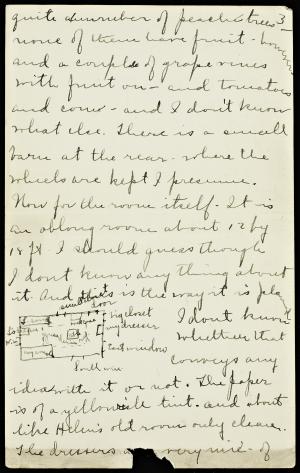 quite a number of peach trees 3-
none of them have fruit - however
and a couple of grape vines
with fruit on - and tomatoes
and corn - and I don't know
what else. There is a small
barn at the rear - where the
wheels are kept I presume.
Now for the room itself - It is
an oblong room about 12 by
18 ft. I should guess though
I don't know any thing about
it. And this is the way it is
door
big closet
my dresser
I don't know
whether that
East window
conveys any
idea with it or not. The paper
is of a yellowish tint - and about
like Helen's old room only cleaner.
The dressers are very nice - of